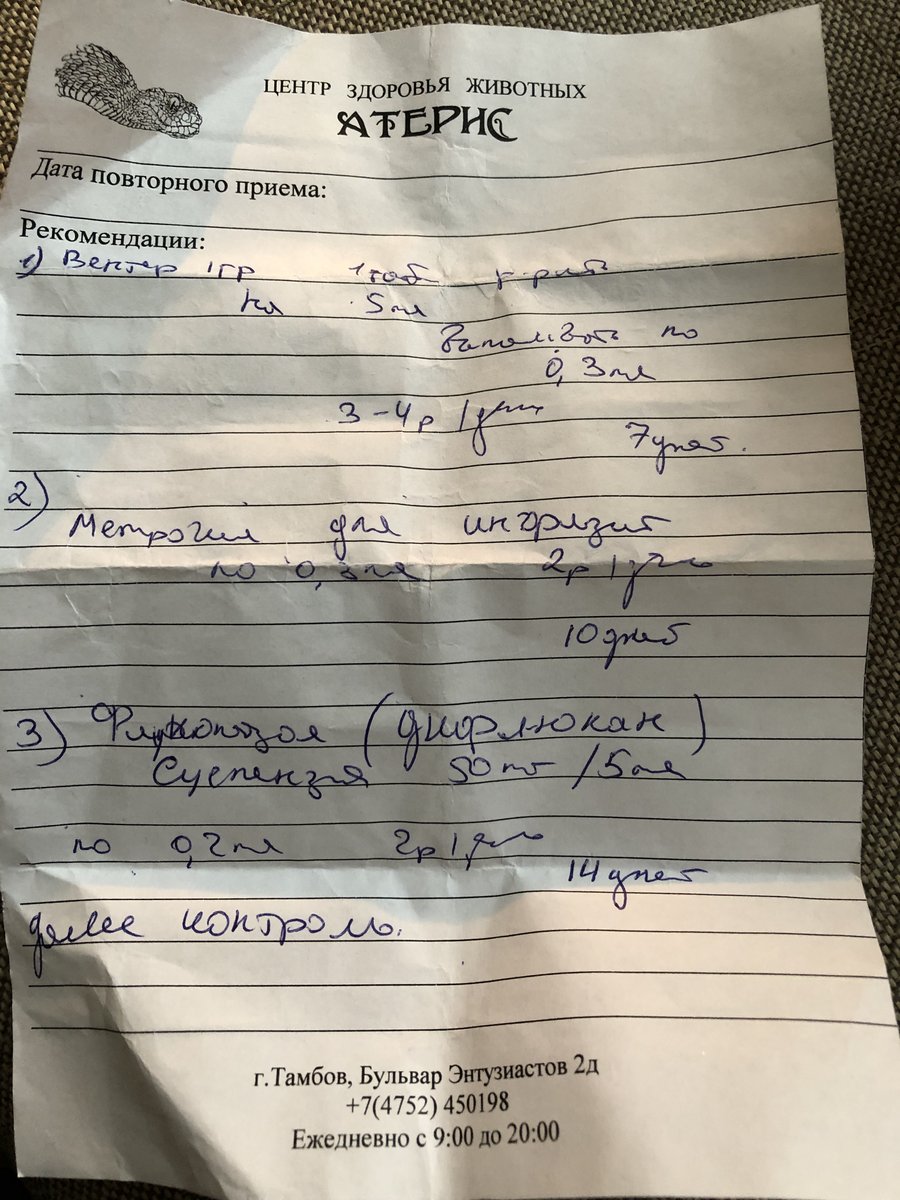 ЦЕНТР ЗДОРОВЬЯ ЖИВОТНЫХ
АТЕРИС
Дата повторного приема:
Рекомендации:
1) Вентер 1гр 1таб
на 5мл
Выпаивать по
0,3мл
3-4р/день
7дней.
2)
Метрогил для инфузий
по 0,3мл 2р/день
10дней
3) (дифлюкан)
Суспензия 50мг/5мл
по 0,2мл 2р/день
14дней
далее контроль.
г.Тамбов, Бульвар Энтузиастов 2д
+7(4752) 450198
Ежедневно с 9:00 до 20:00